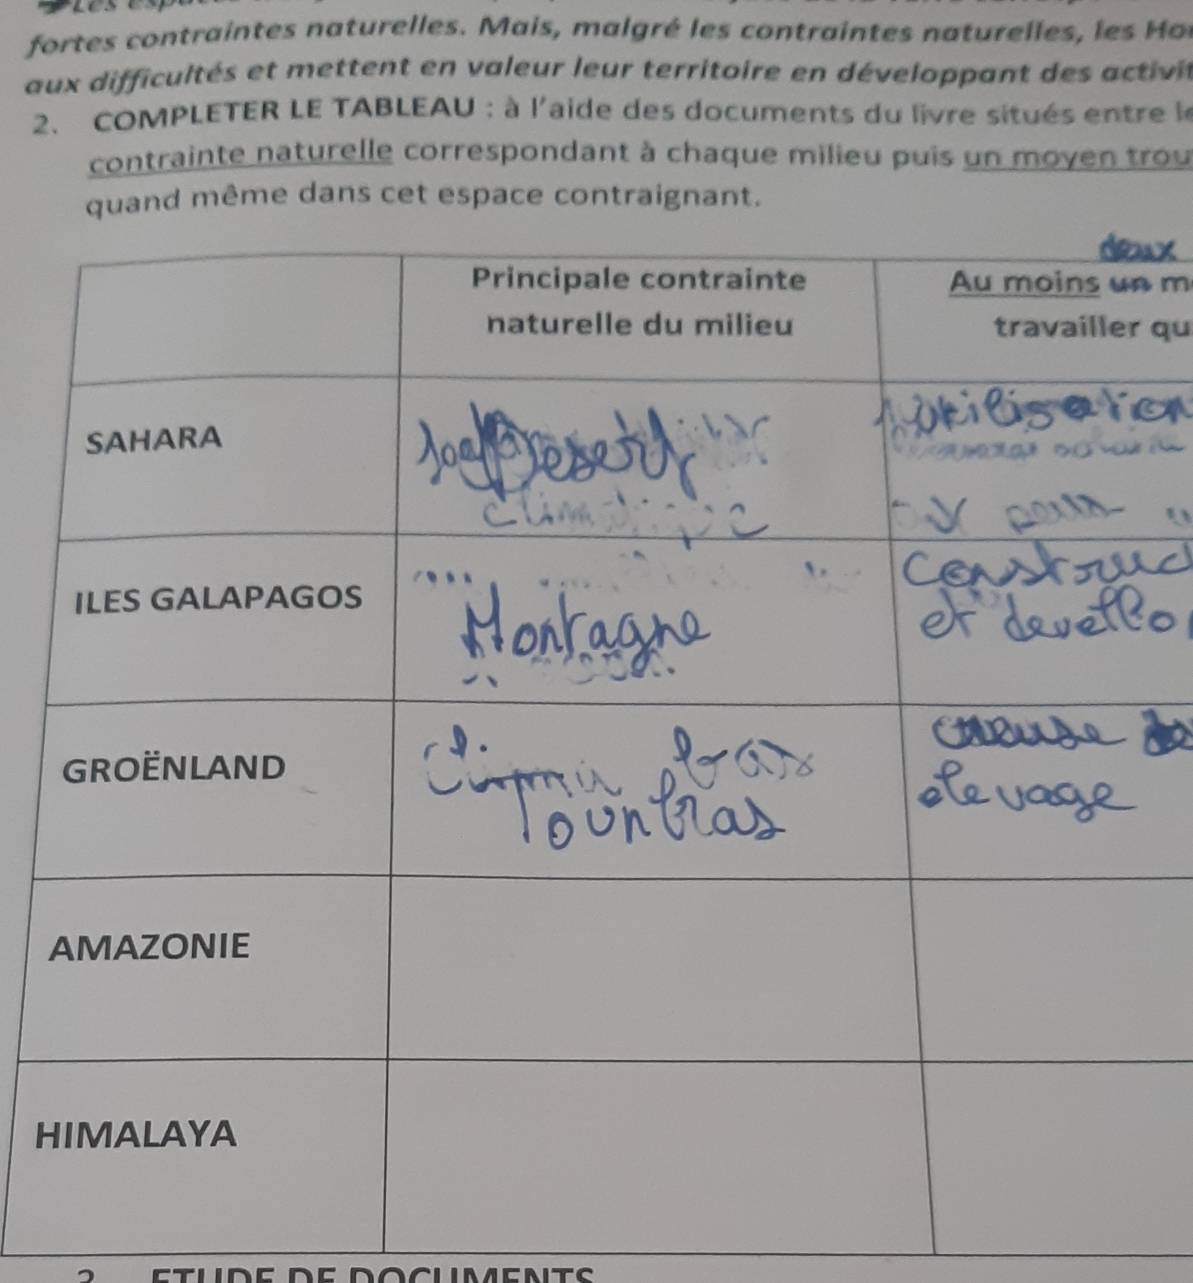 fortes contraintes naturelles. Mais, malgré les contraintes naturelles, les Ho
aux difficultés et mettent en valeur leur territoire en développant des activit
2. COMPLETER LE TABLEAU : à l'aide des documents du livre situés entre le
contrainte naturelle correspondant à chaque milieu puis un moyen trou
quand même dans cet espace contraignant.
deux
Principale contrainte Au moins un m
naturelle du milieu travailler qu
SAHARA Desert
climatique
ILES GALAPAGOS Montagne Construc
et devello
GROËNLAND elevage
AMAZONIE
HIMALAYA
ETUDE DE DOCUMENTS